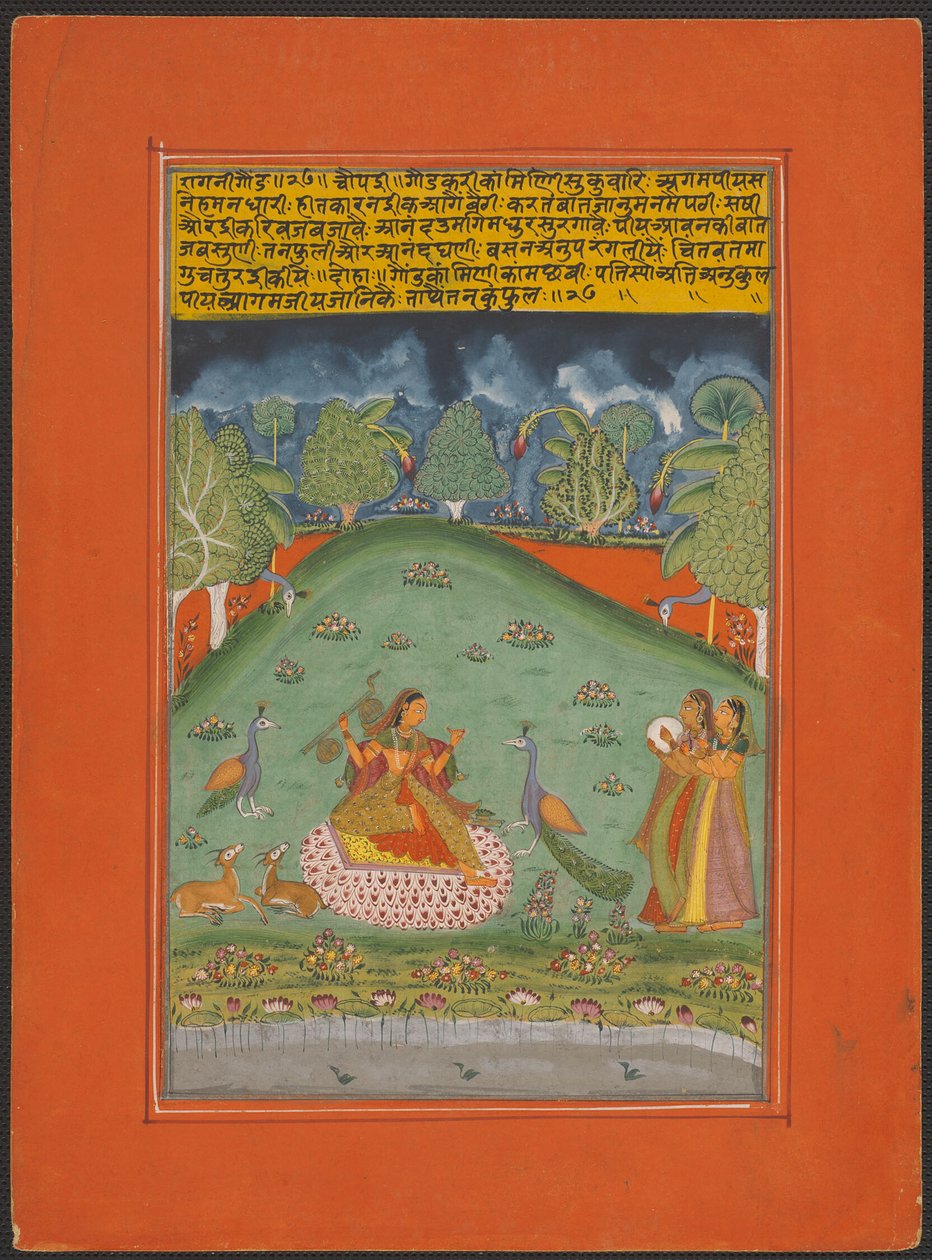 रागनीगौंड॥२७॥ चौपई॥गौडकरीकांमिलिसुकुवारि: अगमपीयस
नेहमनधारी: हातकारनईकआगेबैगी: करतबातजानुमनमैपगी: सषी
औरईकरिवजबजावै: आनंदउमगिमधुरसुरगावै: पीयआवनकीबात
जबसुणी: तनफुलीऔरआनंदघणी: बसनअनुपरंगलीयैं: चितवतमा
गुचतुरईकीयै॥दोहा:॥गौंडकांमिलीकामछबी: पतिस्योअतिअनुकुल
पीयआगमजीयजानिकै: ताथैतनकुंफुल:॥२७ ॥ ॥ ॥